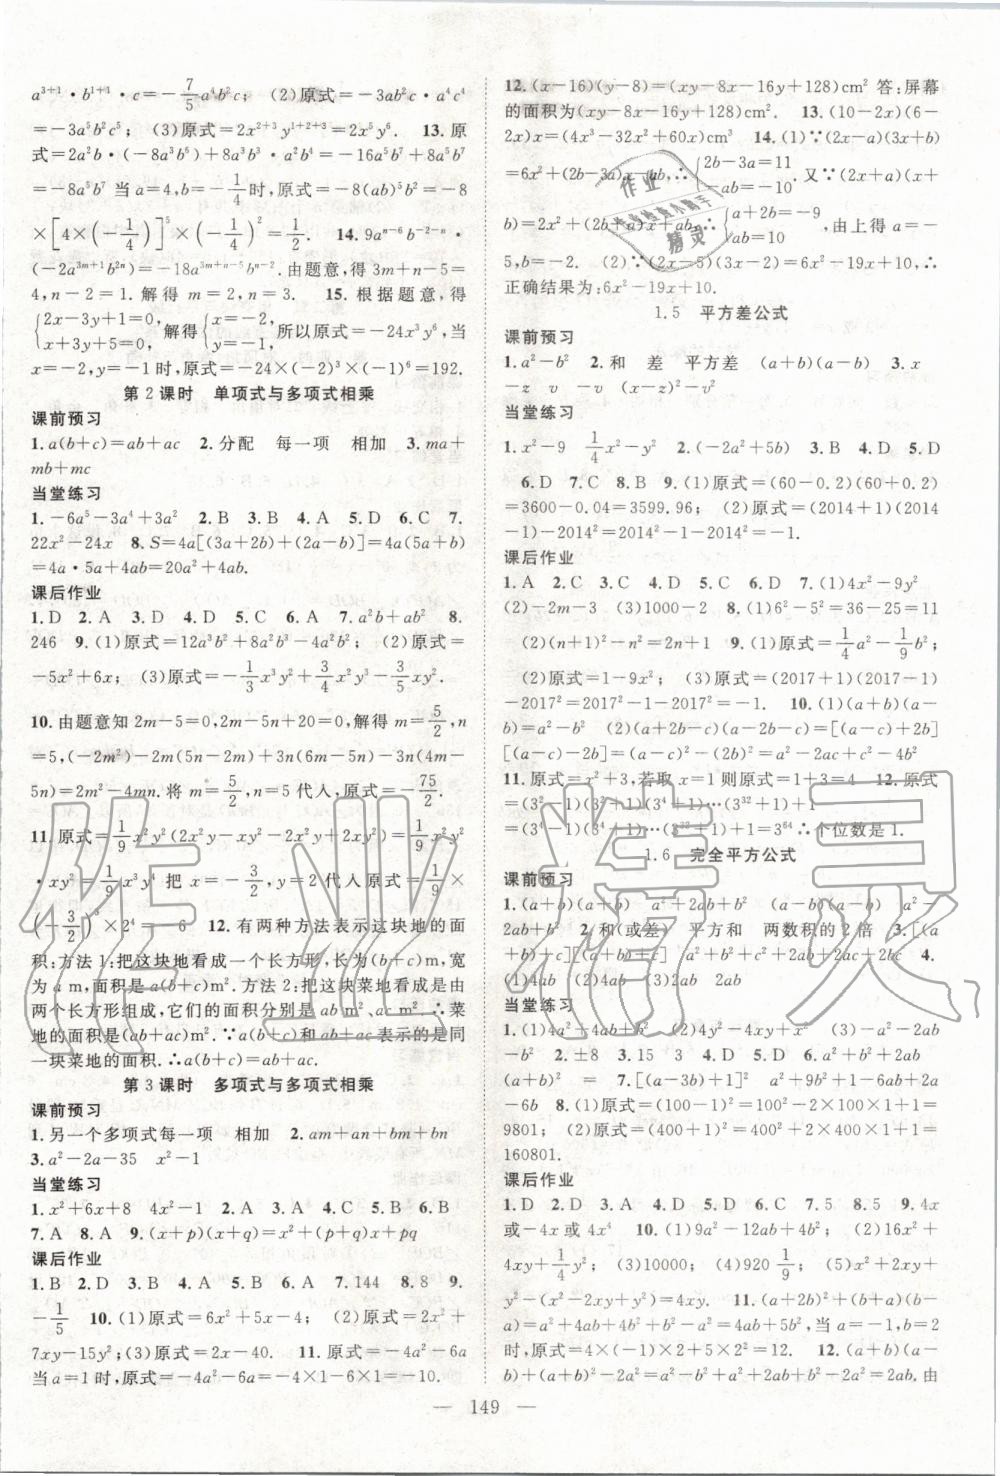 a³⁺¹·b¹⁺¹·c=-7/5a⁴b²c；(2)原式=-3ab²c·a⁴c⁴
=-3a⁵b²c⁵；(3)原式=2x²⁺³y¹⁺²⁺³=2x⁵y⁶. 13.原
式=2a²b·(-8a³b⁶)+8a³b⁶·a²b⁴=-16a⁵b⁷+8a⁵b¹⁰
=-8a⁵b⁷ 当 a=4,b=-1/4时,原式=-8(ab)⁵b²=-8
×[4×(-1/4)]⁵×(-1/4)²=1/2. 14.9aⁿ⁻⁶b⁻²⁻ⁿ·
(-2a³ᵐ⁺¹b²ⁿ)=-18a³ᵐ⁺ⁿ⁻⁵bⁿ⁻².由题意,得3m+n-5=
4,n-2=1.解得m=2,n=3. 15.根据题意,得
{2x-3y+1=0, x+3y+5=0,解得{x=-2, y=-1,所以原式=-24x³y⁶,当
x=-2,y=-1时,原式=-24×(-2)³×(-1)⁶=192.
第2课时 单项式与多项式相乘
课前预习
1.a(b+c)=ab+ac 2.分配 每一项 相加 3.ma+
mb+mc
当堂练习
1.-6a⁵-3a⁴+3a² 2.B 3.B 4.A 5.D 6.C 7.
22x²-24x 8.S=4a[(3a+2b)+(2a-b)]=4a(5a+b)
=4a·5a+4ab=20a²+4ab.
课后作业
1.D 2.A 3.D 4.D 5.C 6.A 7.a²b+ab² 8.
246 9.(1)原式=12a³b²+8a²b³-4a²b²；(2)原式=
-5x²+6x；(3)原式=-1/3x³y+3/4x²y³-3/5xy².
10.由题意知2m-5=0,2m-5n+20=0,解得m=5/2,n
=5,(-2m²)-2m(5n-2m)+3n(6m-5n)-3n(4m-
5n)=2m²-4mn.将m=5/2,n=5代入,原式=-75/2.
11.原式=1/9x²y²(2x²y-xy²-2x²y+2xy²)=1/9x²y²
·xy²=1/9x³y⁴ 把x=-3/2,y=2代入原式=1/9×
(-3/2)³×2⁴=-6 12.有两种方法表示这块地的面
积:方法1:把这块地看成一个长方形,长为(b+c)m,宽
为a m,面积是a(b+c)m².方法2:把这块菜地看成是由
两个长方形组成,它们的面积分别是ab m²、ac m².∴菜
地的面积是(ab+ac)m².∵a(b+c)和ab+ac表示的是同
一块菜地的面积.∴a(b+c)=ab+ac.
第3课时 多项式与多项式相乘
课前预习
1.另一个多项式每一项 相加 2.am+an+bm+bn
3.a²-2a-35 x²-1
当堂练习
1.x²+6x+8 4x²-1 2.A 3.C 4.A 5.B 6.B
7.A 8.A 9.(x+p)(x+q)=x²+px+qx+pq
课后作业
1.B 2.D 3.B 4.A 5.B 6.A 7.144 8.8 9.
-1/5 10.(1)原式=6x²+5x-4；(2)原式=2x²+
7xy-15y²；(3)原式=2x-40. 11.原式=-4a²-6a
当a=1时,原式=-4a²-6a=-4×1-6×1=-10.
12.(x-16)(y-8)=(xy-8x-16y+128)cm² 答:屏幕
的面积为(xy-8x-16y+128)cm². 13.(10-2x)(6-
2x)x=(4x³-32x²+60x)cm³ 14.(1)∵(2x-a)(3x+b)
=6x²+(2b-3a)x-ab,∴{2b-3a=11 -ab=-10.又∵(2x+a)(x+
b)=2x²+(2b+a)x+ab,∴{a+2b=-9, ab=-10,由上得a=-
5,b=-2.(2)∵(2x-5)(3x-2)=6x²-19x+10,∴
正确结果为:6x²-19x+10.
1.5 平方差公式
课前预习
1.a²-b² 2.和 差 平方差 (a+b)(a-b) 3.x
-z v -v (x-z)²-v²
当堂练习
1.x²-9 1/4x²-y² 2.(-2a²+5b) 3.B 4.D 5.D
6.D 7.C 8.B 9.(1)原式=(60-0.2)(60+0.2)
=3600-0.04=3599.96；(2)原式=(2014+1)(2014
-1)-2014²=2014²-1-2014²=-1.
课后作业
1.A 2.C 3.C 4.D 5.D 6.D 7.(1)4x²-9y²
(2)-2m-3 (3)1000-2 8.(1)6²-5²=36-25=11
(2)(n+1)²-n²=2n+1 9.(1)原式=1/4a²-1/9b²；
(2)原式=1-9x²；(3)原式=(2017+1)(2017-1)
-2017²=2017²-1-2017²=-1. 10.(1)(a+b)(a-
b)=a²-b² (2)(a+2b-c)(a-2b-c)=[(a-c)+2b]
[(a-c)-2b]=(a-c)²-(2b)²=a²-2ac+c²-4b²
11.原式=x²+3,若取x=1则原式=1+3=4 12.原式
=(3²-1)(3²+1)(3⁴+1)…(3³²+1)+1
=(3⁴-1)(3⁴+1)…(3³²+1)+1=3⁶⁴∴个位数是1.
1.6 完全平方公式
课前预习
1.(a+b)(a+b) a²+2ab+b² (a-b)(a-b) a²-
2ab+b² 2.和(或差) 平方和 两数积的2倍 3.[(a
+b)+c][(a+b)+c] a²+b²+c²+2ab+2ac+2bc 4.
(1)4ab (2)4ab (3)-2ab 2ab
当堂练习
1.(1)4a²+4ab+b² (2)4y²-4xy+x² (3)-a²-2ab
-b² 2.±8 3.15 3 4.C 5.A 6.a²+b²+2ab
(a+b)²=a²+b²+2ab 7.[(a-3b)+1]²
-6b 8.(1)原式=(100-1)²=100²-2×100×1+1=
9801；(2)原式=(400+1)²=400²+2×400×1+1=
160801.
课后作业
1.D 2.D 3.A 4.D 5.C 6.A 7.5 8.5 9.4x
或-4x或4x⁴ 10.(1)9a²-12ab+4b²；(2)16x²+
4xy+1/4y²；(3)10000；(4)920 1/9；(5)原式=x²+2xy+
y²-(x²-2xy+y²)=4xy. 11.(a+2b)²+(b+a)(b-
a)=a²+4ab+4b²+b²-a²=4ab+5b²,当a=-1,b=2
时,原式=4×(-1)×2+5×2²=12. 12.(a+b)(a-
b)+(a+b)²-2a²=a²-b²+a²+2ab+b²-2a²=2ab.由
— 149 —
作业精灵